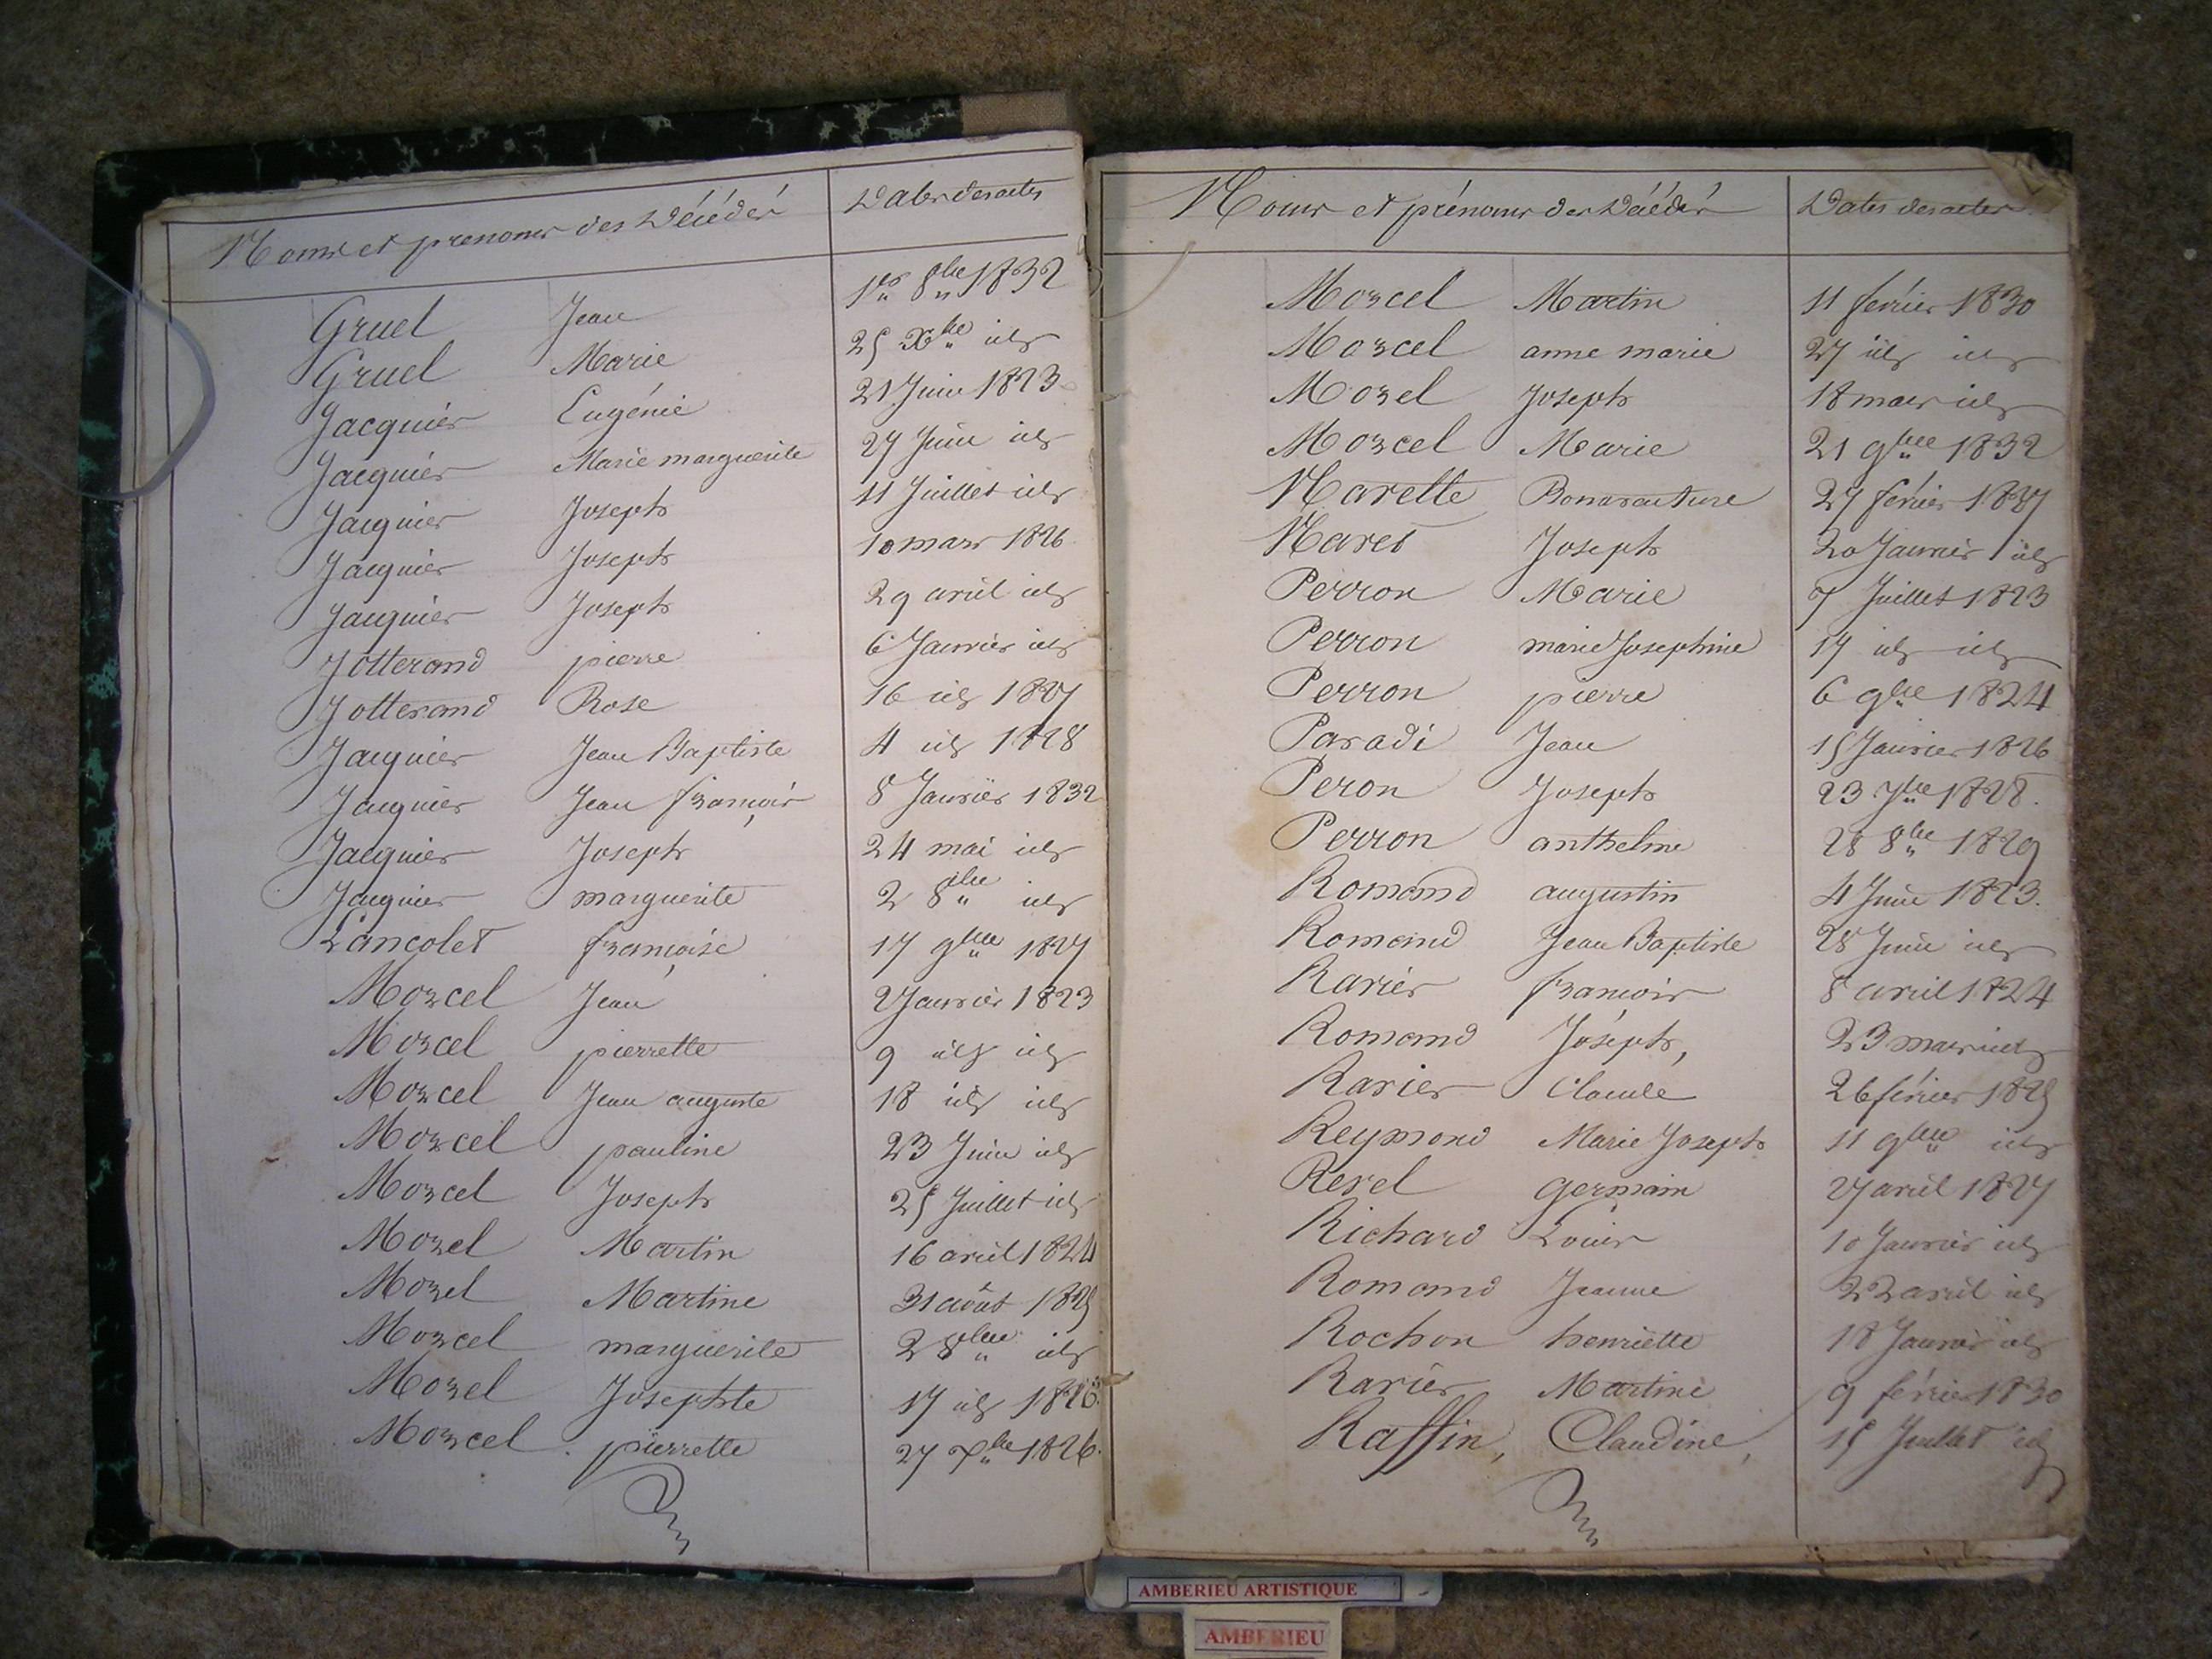 Noms et prenoms des Décédés Dates des actes
Gruel Jean 1er 8bre 1832
Gruel Marie 25 Xbre id
Jacquier Eugénie 21 Juin 1823
Jacquier Marie marguerite 27 Juin id
Jacquier Joseph 11 Juillet id
Jacquier Joseph 10 mars 1826
Jacquier Joseph 29 avril id
Jotterand pierre 6 Janvier id
Jotterand Rose 16 id 1827
Jacquier Jean Baptiste 4 id 1828
Jacquier Jean françois 8 Janvier 1832
Jacquier Joseph 24 mai id
Jacquier marguerite 2 8bre id
Lançolet françoise 17 9bre 1827
Morcel Jean 2 Janvier 1823
Morcel pierrette 9 id id
Morcel Jean auguste 18 id id
Morcel pauline 23 Juin id
Morcel Joseph 25 Juillet id
Morel Martin 16 avril 1824
Morel Martine 31 août 1825
Morcel marguerite 2 8bre id
Morel Josephte 17 id 1826
Morcel pierrette 27 Xbre 1826
Noms et prénoms des Décédés Dates des actes
Morcel Martin 11 fevrier 1830
Morcel anne marie 27 id id
Morel Joseph 18 mars id
Morcel Marie 21 9bre 1832
Navette Bonavanture 27 févrièr 1827
Navet Joseph 20 Janvier id
Perron Marie 7 Juillet 1823
Perron marie Josephine 17 id id
Perron pierre 6 9bre 1824
Paradi Jean 15 Janvier 1826
Peron Joseph 23 7bre 1828
Perron anthelme 28 8bre 1829
Romand augustin 4 Juin 1823
Romand Jean Baptiste 28 Juin id
Ravier françois 8 avril 1824
Romand Joseph, 23 mars id
Ravier Claude 26 février 1825
Reymond Marie Joseph 11 9bre id
Revel germain 27 avril 1827
Richard Louis 10 Janvier id
Romand Jeanne 22 avril id
Rochon henriette 18 Janvier id
Ravier Martine 9 février 1830
Raffin, Claudine, 15 Juillet id
AMBERIEU ARTISTIQUE
AMBERIEU